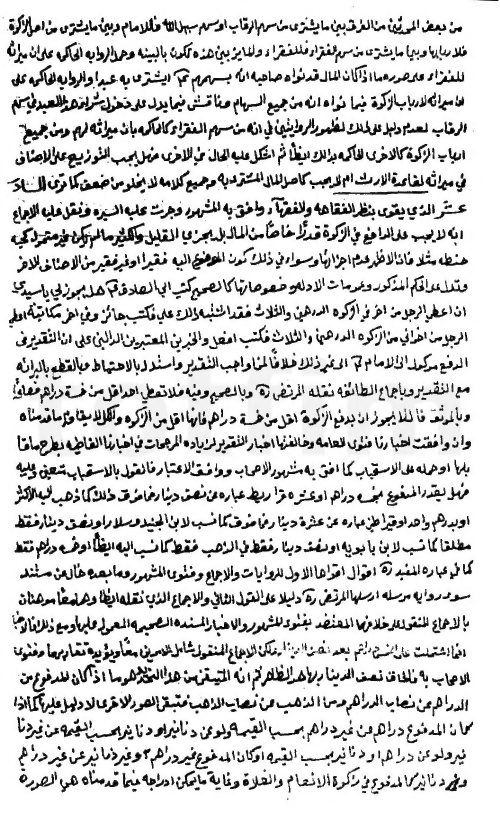 من بعض الموثقين من الفرق بين ما يشترى من سهم الرقاب او سهم سبيل الله فللامام وبين ما يشترى من اصل الزكوة
فلاربابها وبين ما يشترى من سهم الفقراء فللفقراء
للفقراء على صورة ما اذا كان المال قد نواه صاحبه انه بسهمهم ثم اشترى به عبدا والرواية الحاكمة على
ان ميراثه لارباب الزكوة فيما نواه انه من جميع السهام وناقش فيما يدل على دخول شراء هذا العبد في سهم
الرقاب لعدم دليل على ذلك لظهور الروايتين في انه من سهم الفقراء كالحاكمة بان ميراثه لهم ومن جميع
ارباب الزكوة كالاخرى الحاكمة بذلك ايضا ثم اشكل عليه الحال في الاخرى فهل يجب التوزيع على الاصناف
في ميراثه لقاعدة الارث ام لا يجب كاصل المال المشترى به وجميع كلامه لا يخلو من ضعف كما ترى السادس
عشر الذي يقوى بنظر الفقاهة والفقراء وافتى به المشهور وجرت عليه السيرة ونقل عليه الاجماع
انه لا يجب على الدافع في الزكوة قدرا خاصا من المال بل يجزي القليل والكثير ما لم يكن غير متمول كحبة
حنطة مثلا فان الاظهر عدم اجزائها وسواء في ذلك كون المدفوع اليه فقيرا او غير فقير من الاصناف الاخر
وتدل على الحكم المذكور عمومات الادلة وخصوصا الصحيح كتبت الى الصادق ثم هل يجوز لي يا سيدي
ان اعطي الرجل من اخواني من الزكوة الدرهمين والثلاثة فقد اشتبه ذلك علي فكتب جائز وفي اخر مكاتبة اعطي
الرجل من اخواني من الزكوة الدرهمين والثلاثة فكتب افعل والخبرين المعتبرين الدالين على ان التقدير في
الدفع موكول الى الامام الى غير ذلك خلافا لمن اوجب التقدير واستدل بالاحتياط للقطع بالبراءة
مع التقدير وباجماع الطائفة نقله المرتضى ره وبالصحيح وفيه فلا تعطي احدا اقل من خمسة دراهم فصاعدا
وبالموثق قال لا يجوز ان يدفع الزكوة اقل من خمسة دراهم فانها اقل من الزكوة ولكن لا يقاوم ما قدمناه
وان وافقت اخبارنا فتوى العامة وخالفتها اخبار التقدير لزيادة المرجحات في اخبارنا القاضية بطرح ما قابلها
او حمله على الاستحباب كما افتى به مشهور الاصحاب ووافق الاعتبار فالقول بالاستحباب متعين وعليه
فهل يقدر المدفوع بخمسة دراهم او عشرة قراريط عبارة عن نصف دينار فما فوق ذلك كما ذهب اليه الاكثر
او بدرهم واحد او قيراطين عبارة عن عشرة دينار فما فوق كما نسب لابن الجنيد وسلار او نصف دينار فقط
مطلقا كما نسب لابن بابويه او نصف دينار فقط في الذهب فقط كما نسب اليه ايضا او خمسة دراهم فقط
كما في عبارة المفيد ره اقوال اقواها الاول للروايات والاجماع وفتوى المشهور وما بعده خال عن مستند
سوى رواية مرسلة ارسلها المرتضى ره دليلا على القول الثاني والاجماع الذي نقله ايضا وهما موهنان
بالاجماع المنقول على خلافهما المعتضد بفتوى المشهور والاخبار المسندة الصحيحة المعمول عليها ومع ذلك فالاخبار
انما اشتملت على الخمسة دراهم
الاصحاب به فالحاق نصف الدينار بها هو الظاهر ثم انه المتيقن من هذا التقدير هو ما اذا كان المدفوع من
الدراهم عن نصاب الدراهم ومن الذهب عن نصاب الذهب فتبقى الصور الاخرى لا دليل عليها كما اذا
كان المدفوع دراهم عن غير دراهم بحسب القيمة ولو عن دنانير او دنانير بحسب القيمة عن غير دنانير
ولو عن دراهم او كان المدفوع غير دراهم وغير دنانير عن غير دراهم
وغير دنانير كالمدفوع في زكوة الانعام والغلاة وغاية ما يمكن ادراجه فيما قدمناه هي الصورة